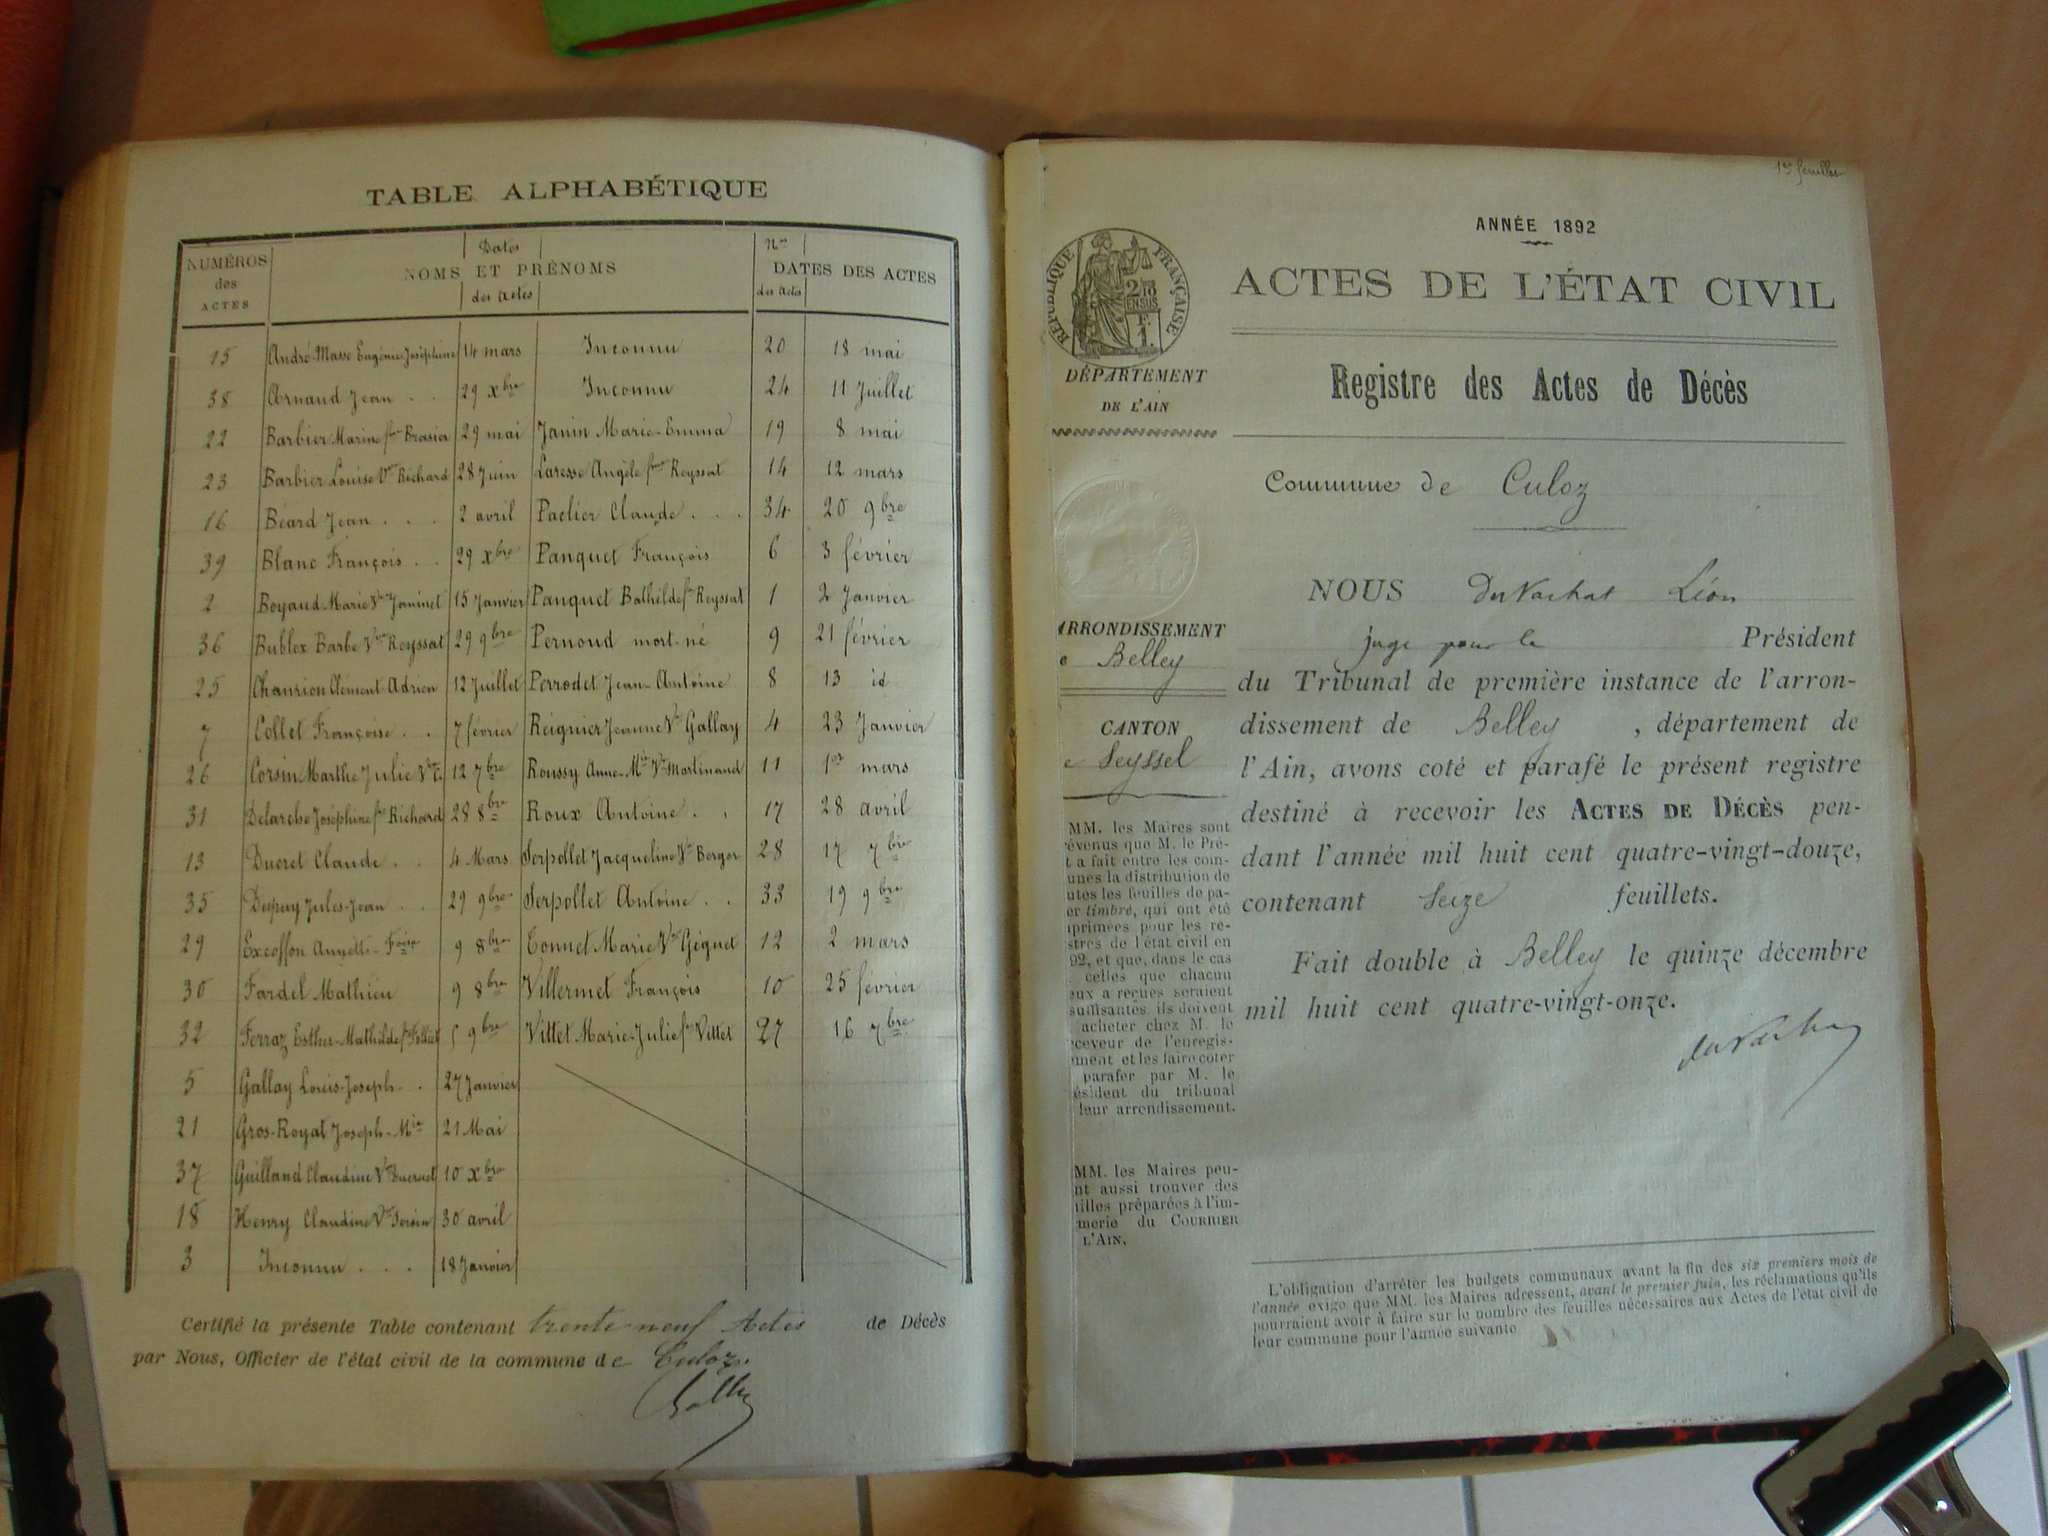 TABLE ALPHABÉTIQUE
NUMÉROS des ACTES
Dates
NOMS ET PRÉNOMS
des actes
Nos
DATES DES ACTES
des actes
15 André-Masse Eugénie-Joséphine 14 mars Inconnu 20 18 mai
38 Arnaud Jean . . 29 Xbre Inconnu 24 11 Juillet
22 Barbier Marine fme Brasier 29 mai Janin Marie-Emma 19 8 mai
23 Barbier Louise Vve Richard 28 Juin Laresse Angèle fme Reyssat 14 12 mars
16 Béard Jean . . . 2 avril Paclier Claude . . . 34 20 9bre
39 Blanc François . . 29 Xbre Panquet François 6 3 février
2 Boyaud Marie Vve Janinet 15 Janvier Panquet Bathilde fe Reyssat 1 2 Janvier
36 Bublex Barbe Vve Reyssat 29 9bre Pernoud mort-né 9 21 février
25 Chanrion Clément Adrien 12 Juillet Perrodet Jean-Antoine 8 13 id
7 Collet Françoise . . 7 février Reignier Jeanne Vve Gallay 4 23 Janvier
26 Corsin Marthe Julie 12 7bre Roussy Anne-Mie Vve Martinand 11 1er mars
31 Delarche Joséphine fe Richard 28 8bre Roux Antoine . . 17 28 avril
13 Ducret Claude . . 4 Mars Serpollet Jacqueline Vve Berger 28 17 7bre
35 Dupuy Jules-Jean . . 29 9bre Serpollet Antoine . . 33 19 9bre
29 Excoffon 9 8bre Tonnet Marie Vve Géquet 12 2 mars
30 Fardel Mathieu 9 8bre Villermet François 10 25 février
32 Ferraz Esther-Mathilde 5 9bre Vittet Marie-Julie fe Vittet 27 16 7bre
5 Gallay Louis-Joseph . 27 Janvier
21 Gros-Royat Joseph-Mie 21 Mai
37 Guilland Claudine Vve 10 Xbre
18 Henry Claudine Vve 30 avril
3 Inconnu . . . 18 Janvier
Certifié la présente Table contenant trente-neuf Actes de Décès
par Nous, Officier de l'état civil de la commune de Culoz.
1er feuillet
ANNÉE 1892
RÉPUBLIQUE FRANÇAISE
2/10 EN SUS
F. 1.
ACTES DE L'ÉTAT CIVIL
DÉPARTEMENT
DE L'AIN
Registre des Actes de Décès
Commune de Culoz
NOUS DuVachat Léon
juge pour le Président
ARRONDISSEMENT
e Belley
CANTON
e Seyssel
du Tribunal de première instance de l'arron-
dissement de Belley , département de
l'Ain, avons coté et parafé le présent registre
destiné à recevoir les ACTES DE DÉCÈS pen-
dant l'année mil huit cent quatre-vingt-douze,
contenant Seize feuillets.
Fait double à Belley le quinze décembre
mil huit cent quatre-vingt-onze.
DuVachat
MM. les Maires sont
révenus que M. le Pré-
t a fait entre les com-
unes la distribution de
utes les feuilles de pa-
er timbré, qui ont été
mprimées pour les re-
stres de l'état civil en
92, et que, dans le cas
celles que chacun
eux a reçues seraient
suffisantes, ils doivent
acheter chez M. le
eceveur de l'enregis-
ment et les faire coter
parafer par M. le
ésident du tribunal
leur arrondissement.
MM. les Maires peu-
nt aussi trouver des
uilles préparées à l'im-
merie du COURRIER
L'AIN.
L'obligation d'arrêter les budgets communaux avant la fin des six premiers mois de
l'année exige que MM. les Maires adressent, avant le premier juin, les réclamations qu'ils
pourraient avoir à faire sur le nombre des feuilles nécessaires aux Actes de l'état civil de
leur commune pour l'année suivante